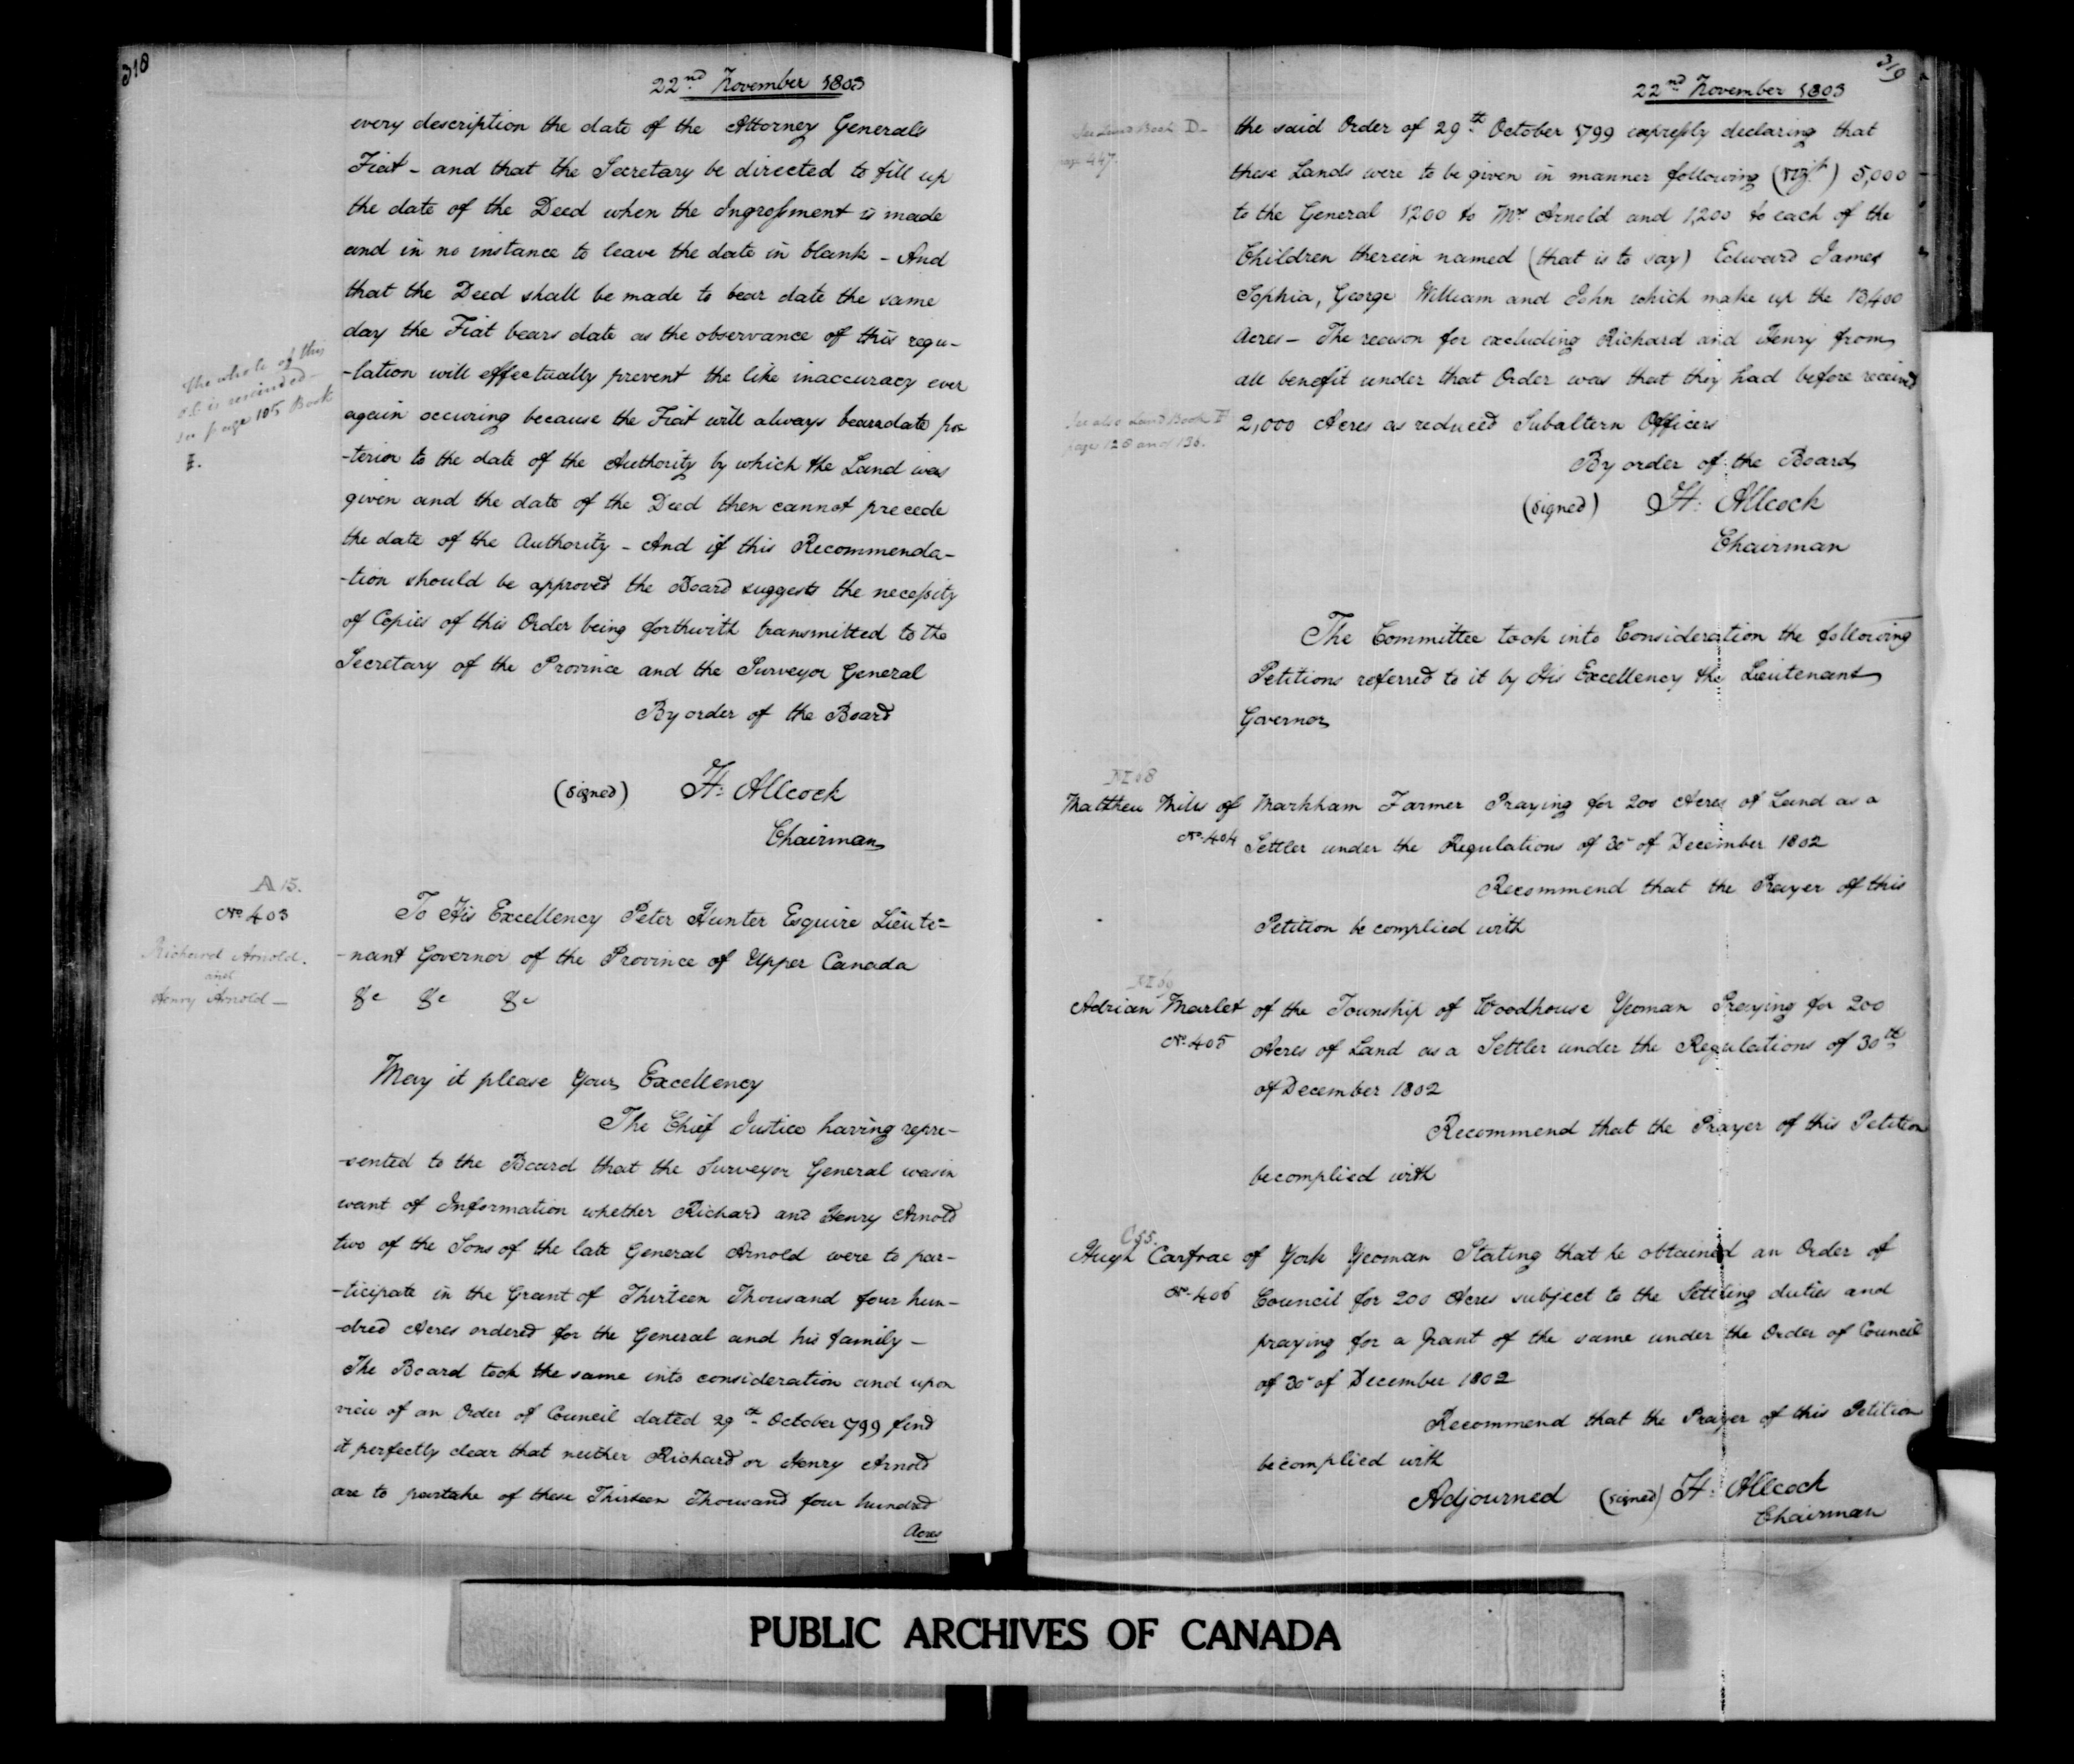 318
22nd November 1803
every description the date of the Attorney Generals
Fiat - and that the Secretary be directed to fill up
the date of the Deed when the Ingrossment is made
and in no instance to leave the date in blank - And
that the Deed shall be made to bear date the same
day the Fiat bears date as the observance of this regu-
-lation will effectually prevent the like inaccuracy ever
again occuring because the Fiat will always bear date pos
-terior to the date of the Authority by which the Land was
given and the date of the Deed then cannot precede
the date of the Authority - And if this Recommenda-
-tion should be approved the Board suggests the necessity
of Copies of this Order being forthwith transmitted to the
Secretary of the Province and the Surveyor General
By order of the Board
(signed) H. Allcock
Chairman
The whole of this
O.C. is rescinded -
see page 105 Book
E.
A 15.
No. 403
Richard Arnold.
and
Henry Arnold -
To His Excellency Peter Hunter Esquire Lieute=
-nant Governor of the Province of Upper Canada
&c &c &c
May it please Your Excellency
The Chief Justice having repre-
-sented to the Board that the Surveyor General was in
want of Information whether Richard and Henry Arnold
two of the Sons of the late General Arnold were to par-
-ticipate in the Grant of Thirteen Thousand four hun-
-dred Acres ordered for the General and his family -
The Board took the same into consideration and upon
view of an Order of Council dated 29th October 1799 find
it perfectly clear that neither Richard or Henry Arnold
are to partake of these Thirteen Thousand four hundred
Acres
319
22nd November 1803
See Land Book D-
page 447.
the said Order of 29th October 1799 expressly declaring that
these Lands were to be given in manner following (vizt) 5,000
to the General 1,200 to Mrs Arnold and 1,200 to each of the
Children therein named (that is to say) Edward James
Sophia, George William and John which make up the 13,400
Acres - The reason for excluding Richard and Henry from
all benefit under that Order was that they had before received
2,000 Acres as reduced Subaltern Officers
See also Land Book F
page 128 and 136.
By order of the Board
(signed) H. Allcock
Chairman
The Committee took into Consideration the following
Petitions referred to it by His Excellency the Lieutenant
Governor
Matthew Mills of Markham Farmer Praying for 200 Acres of Land as a
No. 404 Settler under the Regulations of 30 of December 1802
Recommend that the Prayer of this
Petition be complied with
Adrian Marlet of the Township of Woodhouse Yeoman Praying for 200
No. 405 Acres of Land as a Settler under the Regulations of 30th
of December 1802
Recommend that the Prayer of this Petition
be complied with
C 55.
Hugh Carfrae of York Yeoman Stating that he obtained an Order of
No. 406 Council for 200 Acres subject to the Settling duties and
praying for a Grant of the same under the Order of Council
of 30 of December 1802
Recommend that the Prayer of this Petition
be complied with
Adjourned (signed) H. Allcock
Chairman
PUBLIC ARCHIVES OF CANADA